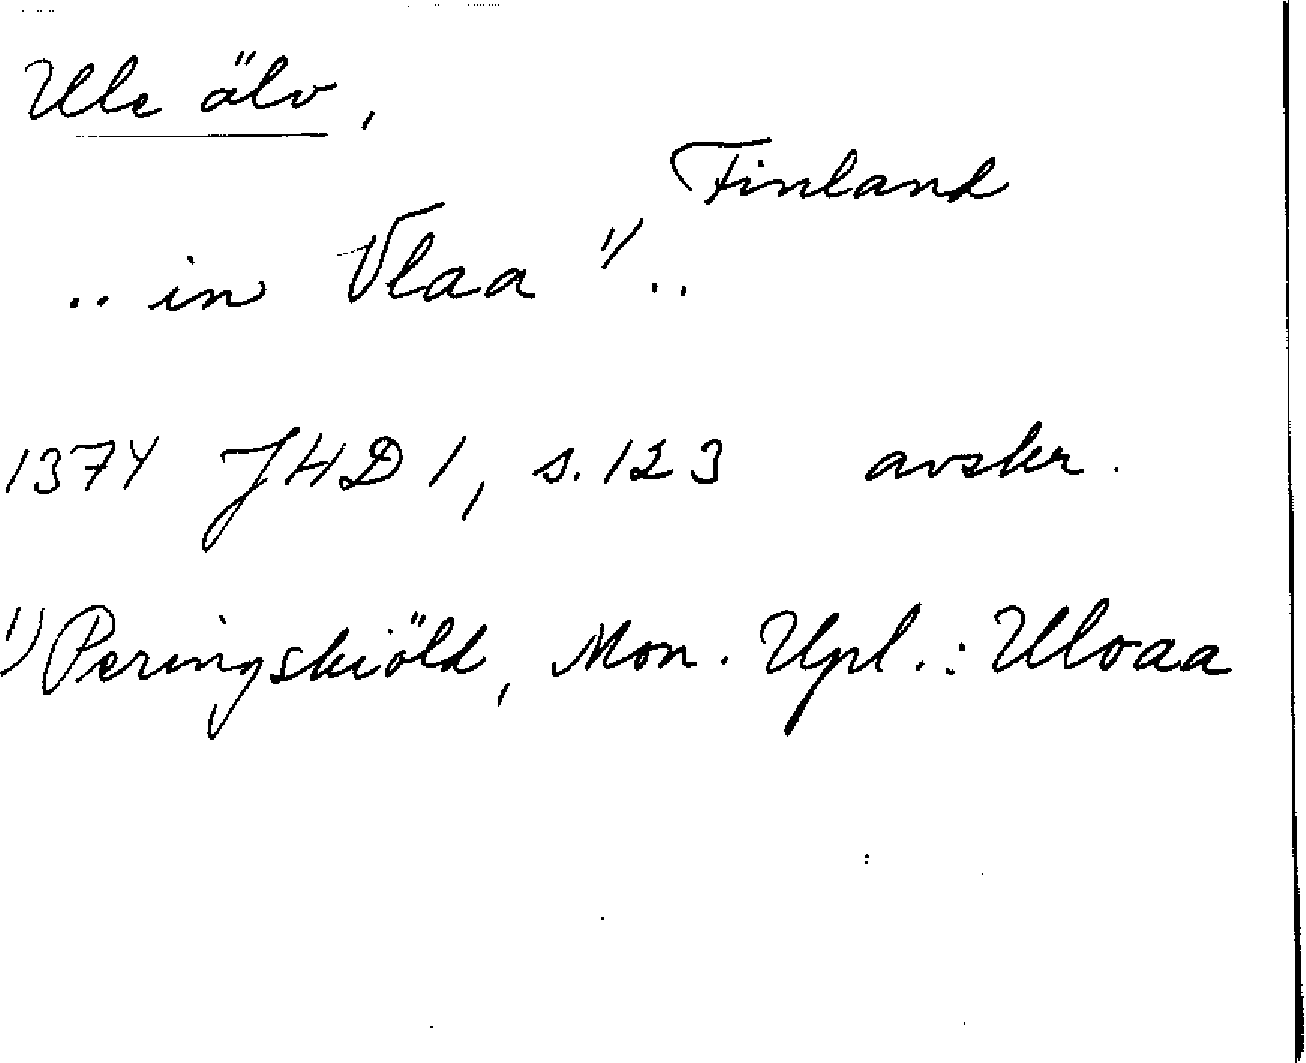 Ule älv,
Finland
.. in Vlaa 1) ..
1374 JHD 1, s. 123 avskr.
1) Peringskiöld, Mon. Upl.: Uloaa